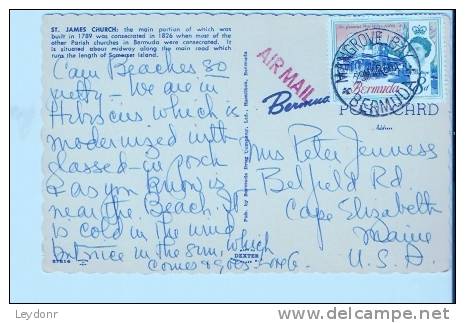 ST. JAMES CHURCH: the main portion of which was
built in 1789 was consecrated in 1826 when most of the
other Parish churches in Bermuda were consecrated. It
is situated about midway along the main road which
runs the length of Somerset Island.
Cam Beaches so
pretty - We are in
Hibiscus which is
modernized with
glassed-in porch
& as you know is
near the Beach. It
is cold in the wind
but nice in the sun, which
comes & goes -
AIR MAIL
Bermuda
MANGROVE BAY
BERMUDA
Bermuda
POST CARD
Address
Mrs Peter Jenness
Belfield Rd
Cape Elizabeth
Maine
U.S.A
Pub. by Bermuda Drug Company, Ltd., Hamilton, Bermuda
DEXTER
Leydonr
delcampe.net